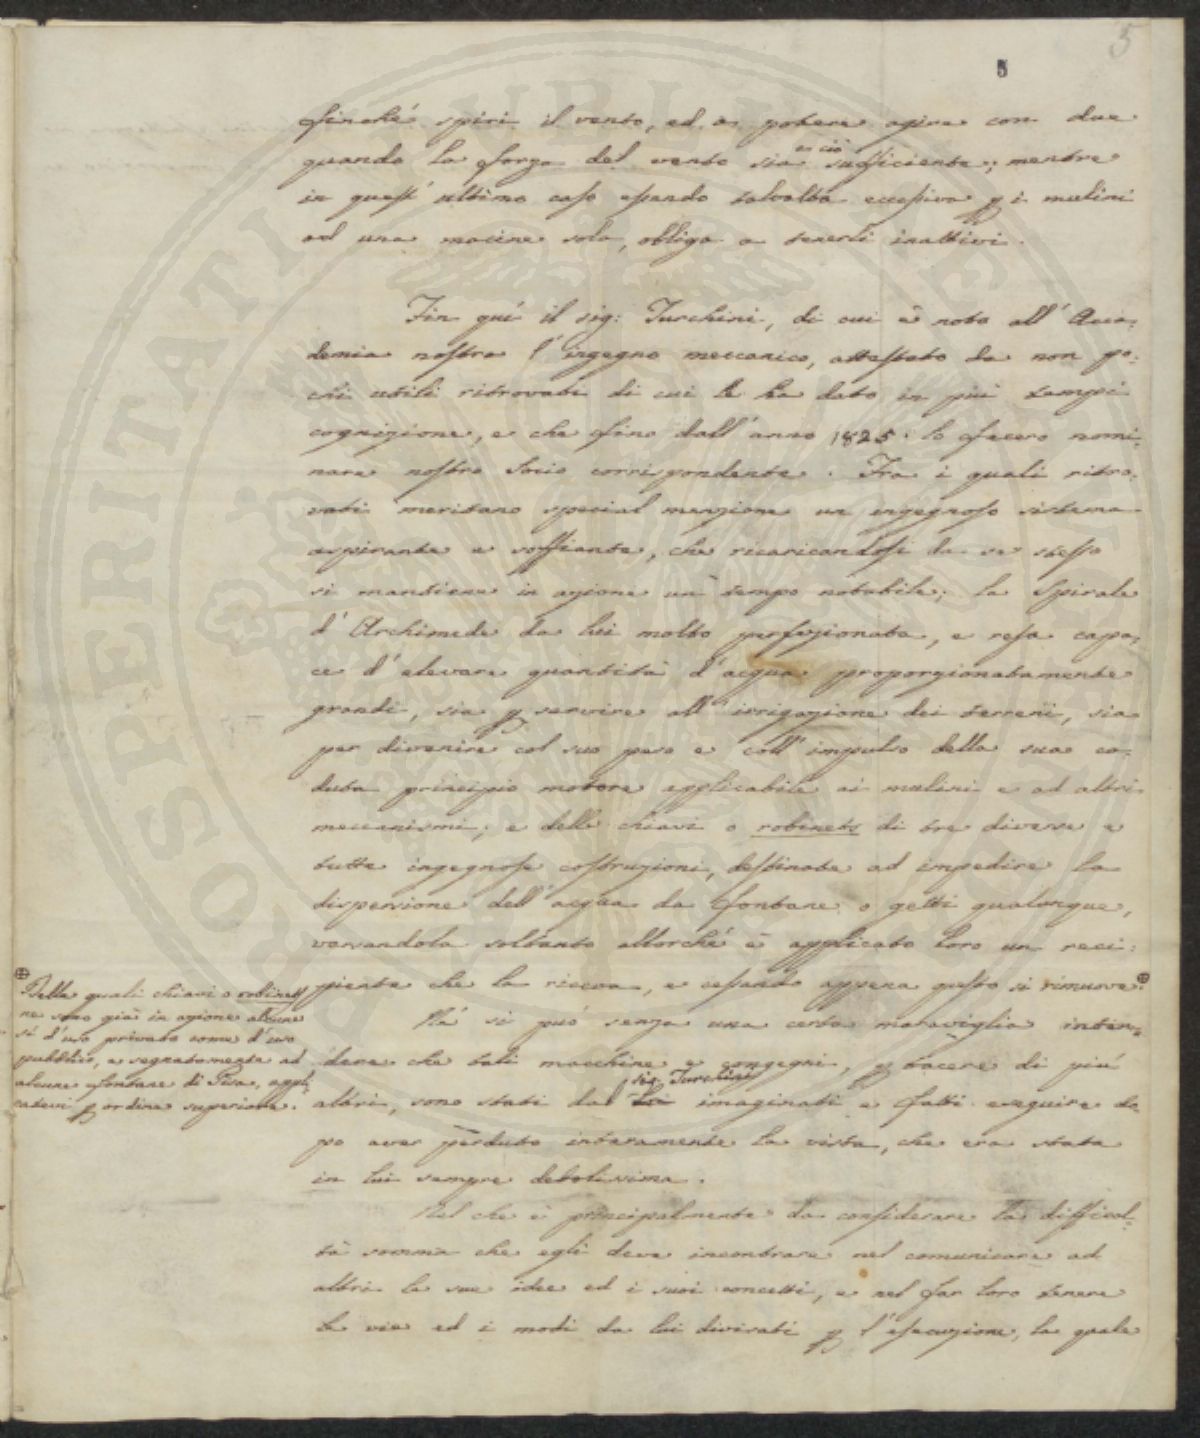 5
5
finché spiri il vento, ed a potere agire con due
quando la forza del vento sia a ciò sufficiente; mentre
in quest' ultimo caso essendo talvolta eccessiva p i mulini
ad una macine sola, obliga a tenerli inattivi.
Fin quì il sig: Turchini, di cui è noto all' Acca-
demia nostra l' ingegno meccanico, attestato da non po-
chi utili ritrovati di cui le ha dato in più tempi
cognizione, e che fino dall' anno 1825. lo fecero nomi-
nare nostro Socio corrispondente. Fra i quali ritro-
vati meritano special menzione un ingegnoso sistema
aspirante e soffiante, che ricaricandosi da se stesso
si mantiene in azione un tempo notabile; la Spirale
d' Archimede da lui molto perfezionata, e resa capa-
ce d' elevare quantità d' acqua proporzionatamente
grandi, sia p servire all' irrigazione dei terreni, sia
per divenire col suo peso e coll' impulso della sua ca-
duta principio motore applicabile ai mulini e ad altri
meccanismi; e delle chiavi o robinets di tre diverse e
tutte ingegnose costruzioni, destinate ad impedire la
dispersione dell' acqua da fontane o getti qualunque,
versandola soltanto allorché è applicato loro un reci-
piente che la riceva, e cessando appena questo si rimuove.⊕
⊕
Delle quali chiavi o robinets
ne sono già in azione alcune
sì d' uso privato come d' uso
pubblico, e segnatamente ad
alcune fontane di Pisa, appli-
catevi p ordine superiore.
Né si può senza una certa maraviglia inten-
dere che tali macchine e congegni, p tacere di più
altri, sono stati dal sig. Turchini imaginati e fatti eseguire do-
po aver perduto interamente la vista, che era stata
in lui sempre debolissima.
Nel che è principalmente da considerare la difficol-
tà somma che egli deve incontrare nel comunicare ad
altri le sue idee ed i suoi concetti, e nel far loro tenere
le vie ed i modi da lui divisati p l' esecuzione, la quale
PROSPERITATI PUBLICAE AUGENDAE